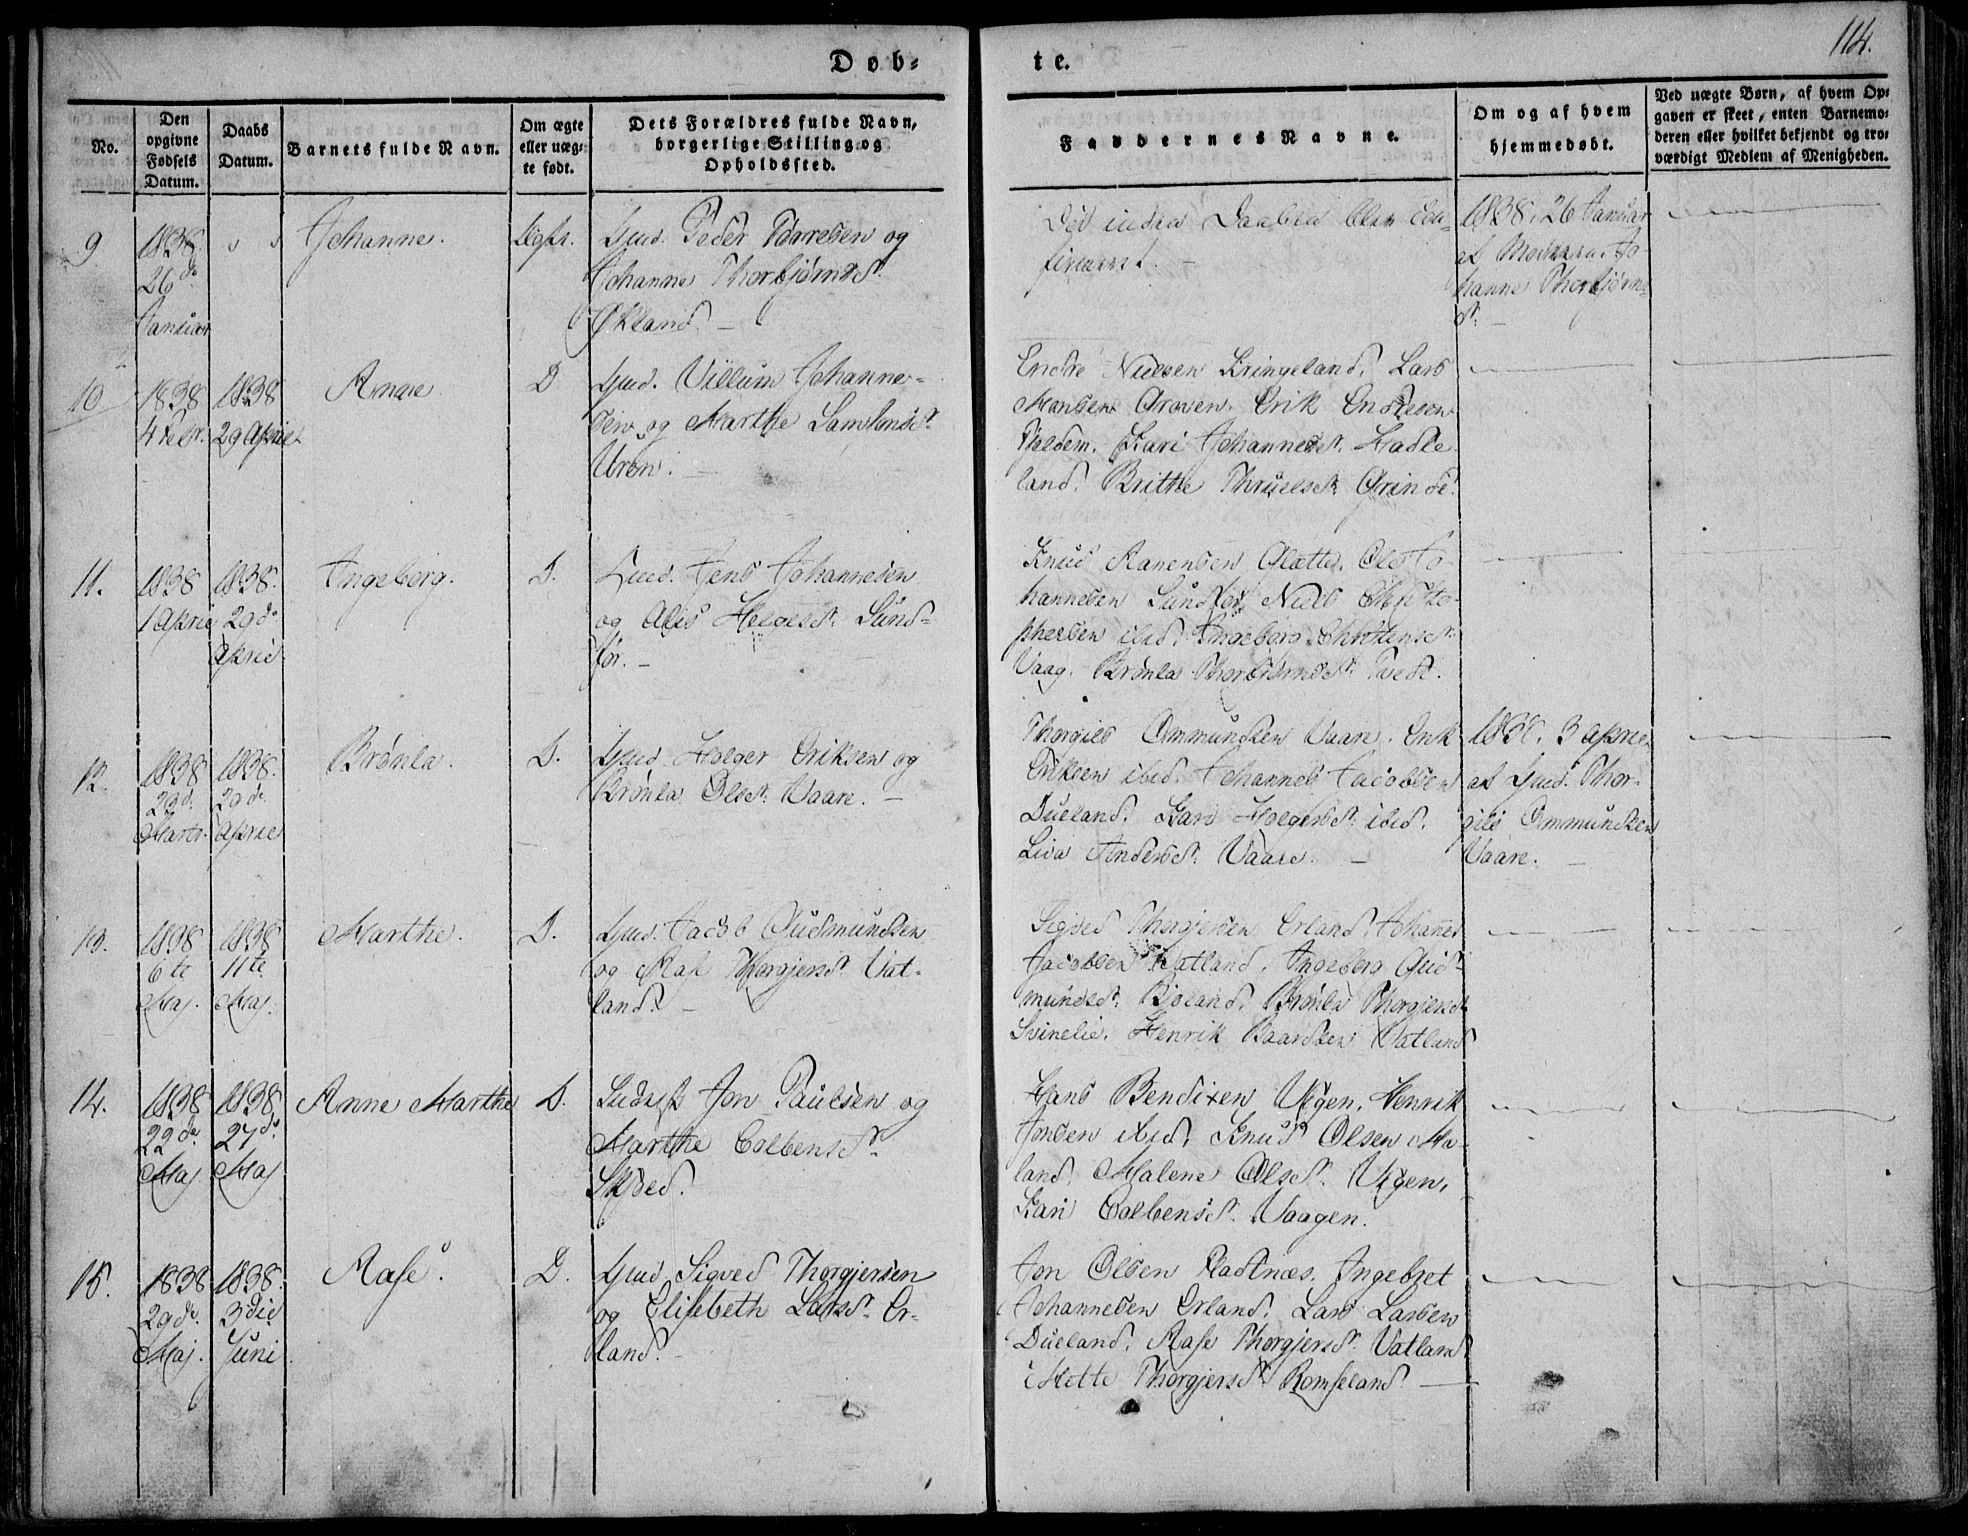 114.
Døb-
te.
No.
Den opgivne Fødsels Datum.
Daabs Datum.
Barnets fulde Navn.
Om ægte eller uæg-
te født.
Dets Forældres fulde Navn,
borgerlige Stilling og
Opholdssted.
Faddernes Navne.
Om og af hvem
hjemmedøbt.
Ved uægte Børn, af hvem Op-
gaven er skeet, enten Barnemo-
deren eller hvilket bekjendt og tro-
værdigt Medlem af Menigheden.
9
1838
26 d.
Januar
Johanne.
Gmd. Peder Torresen og
Johanne Thorbjørnsd.
Økland. –
Død inden Daaben blev con-
firmeret. –
1838, 26 Januar
af Moderen Jo
hanne Thorbjørns
d. –
10
1838
4 Febr.
1838
29 April
Anne
D
Gmd. Villum Johanne-
sen og Marthe Samsonsd.
Uren. –
Endre Nielsen Kringeland, Lars
Monsen Groven, Erik Endresen
Tjoldem, Kari Johannesd. Hadle
land, Brithe Thruelsd. Grinde.
11.
1838
1 April
1838.
29 d.
April
Ingeborg.
D.
Gmd. Jens Johannesen
og Alis Helgesd. Sund-
før. –
Knud Ranensen Glette, Ole Jo
hannesen Sundfør, Niels Christo-
phersen ibid. Ingeborg Christensd.
Vaag. Brønla Thorbjørnsd. Tvedt.
12.
1838
29 d.
Marts.
1838.
29 d.
April
Brønla.
D.
Gmd. Holger Eriksen og
Brønla Olsd. Vaare. –
Thorgils Ommundsen Vaare. Erik
Eriksen ibid. Johannes Jacobsen
Dueland. Kari Holgersd. ibid.
Liva Andersd. Vaare. –
1838, 3 April
af Gmd. Thor-
gils Ommundsen
Vaare. –
13.
1838
6te
Maj.
1838
11te
Maj.
Marthe.
D.
Gmd. Jacob Gudmundsen
og Aase Thorgjersd. Vat-
land. –
Sigved Thorgjersen Erland, Johannes
Jacobsen Vatland. Ingeborg Gud-
mundsd. Bjoland, Brønla Thorgjersd.
Svinelie. Henrik Baardsen Vatland
14.
1838
22de
Maj
1838
27d.
Maj
Anne Marthe
D.
Jon Paulsen og
Marthe Colbensd.
Hans Bendixen Vigen. Henrik
Jonsen ibid. Knud Olsen Ma
land, Malene Olsd. Vigen,
Kari Colbensd. Vaagen.
15.
1838
29de
Maj.
1838.
3die
Juni
Aase.
D.
Gmd Sigved Thorgjersen
og Elisebeth Larsd. Er-
land. –
Jon Olsen Fladtnæs. Ingebret
Johannesen Erland, Lars Larsen
Dueland. Aase Thorgjersd. Vatland
Mette Thorgjersd. Romseland –